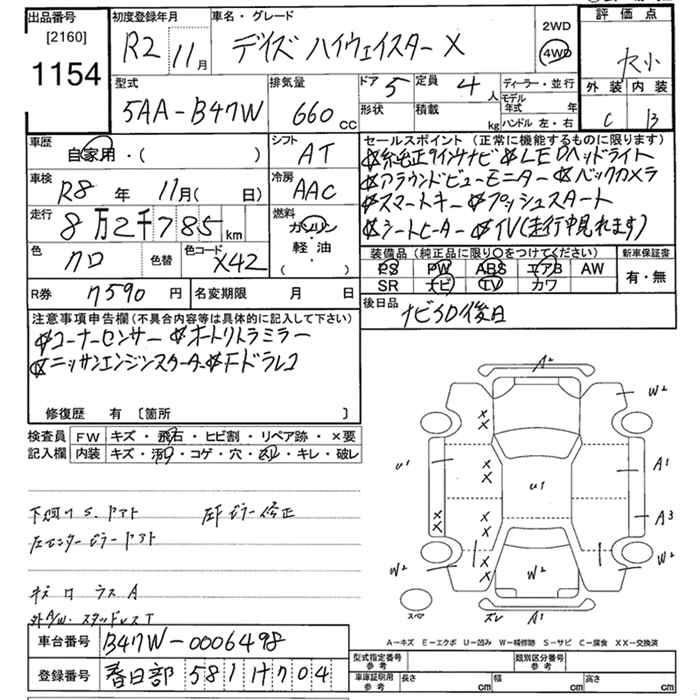 出品番号
[2160]
1154
初度登録年月
R2年11月
車名・グレード
デイズ ハイウェイスター X
2WD
4WD
評価点
外装 内装
C B
型式
5AA-B47W
排気量
660 cc
ドア 5
定員 4 人
形状
積載 kg
ディーラー・並行
モデル年式 年
ハンドル 左・右
車歴
自家用・( )
シフト
AT
車検
R8年 11月( 日)
冷房
AAC
走行
8万2千785 km
燃料
ガソリン
軽・油
( ・ )
色
クロ
色替
色コード
X42
R券 7590円
名変期限 月 日
セールスポイント(正常に機能するものに限ります)
純正9インナビ LEDヘッドライト
アラウンドビューモニター バックカメラ
スマートキー プッシュスタート
シートヒーター TV(走行中見れます)
装備品(純正品に限り○をつけてください)
PS PW ABS エアB AW
SR ナビ TV カワ
新車保証書
有・無
後日品
ナビSD後日
注意事項申告欄(不具合内容等は具体的に記入して下さい)
コーナーセンサー オートリトラミラー
ニッサンエンジンスターター Fドラレコ
修復歴 有 〔箇所 〕
検査員記入欄
FW キズ・飛石・ヒビ割・リペア跡・×要
内装 キズ・汚れ・コゲ・穴・凹・キレ・破レ
下廻りS、ドアト
左Fピラー修正
左センターピラードアト
キズ ロ ラス A
外A/W・スタッドレスT
車台番号 B47W-0006498
登録番号 春日部 581 け 704
A2
W2
U1
A1
U1
A3
W2
W2
W2
スペア
ズレ A1
A-キズ E-エクボ U-凹み W-補修跡 S-サビ C-腐食 XX-交換済
型式指定番号 参考
類別区分番号 参考
車庫証明用 参考
長さ cm 幅 cm 高さ cm